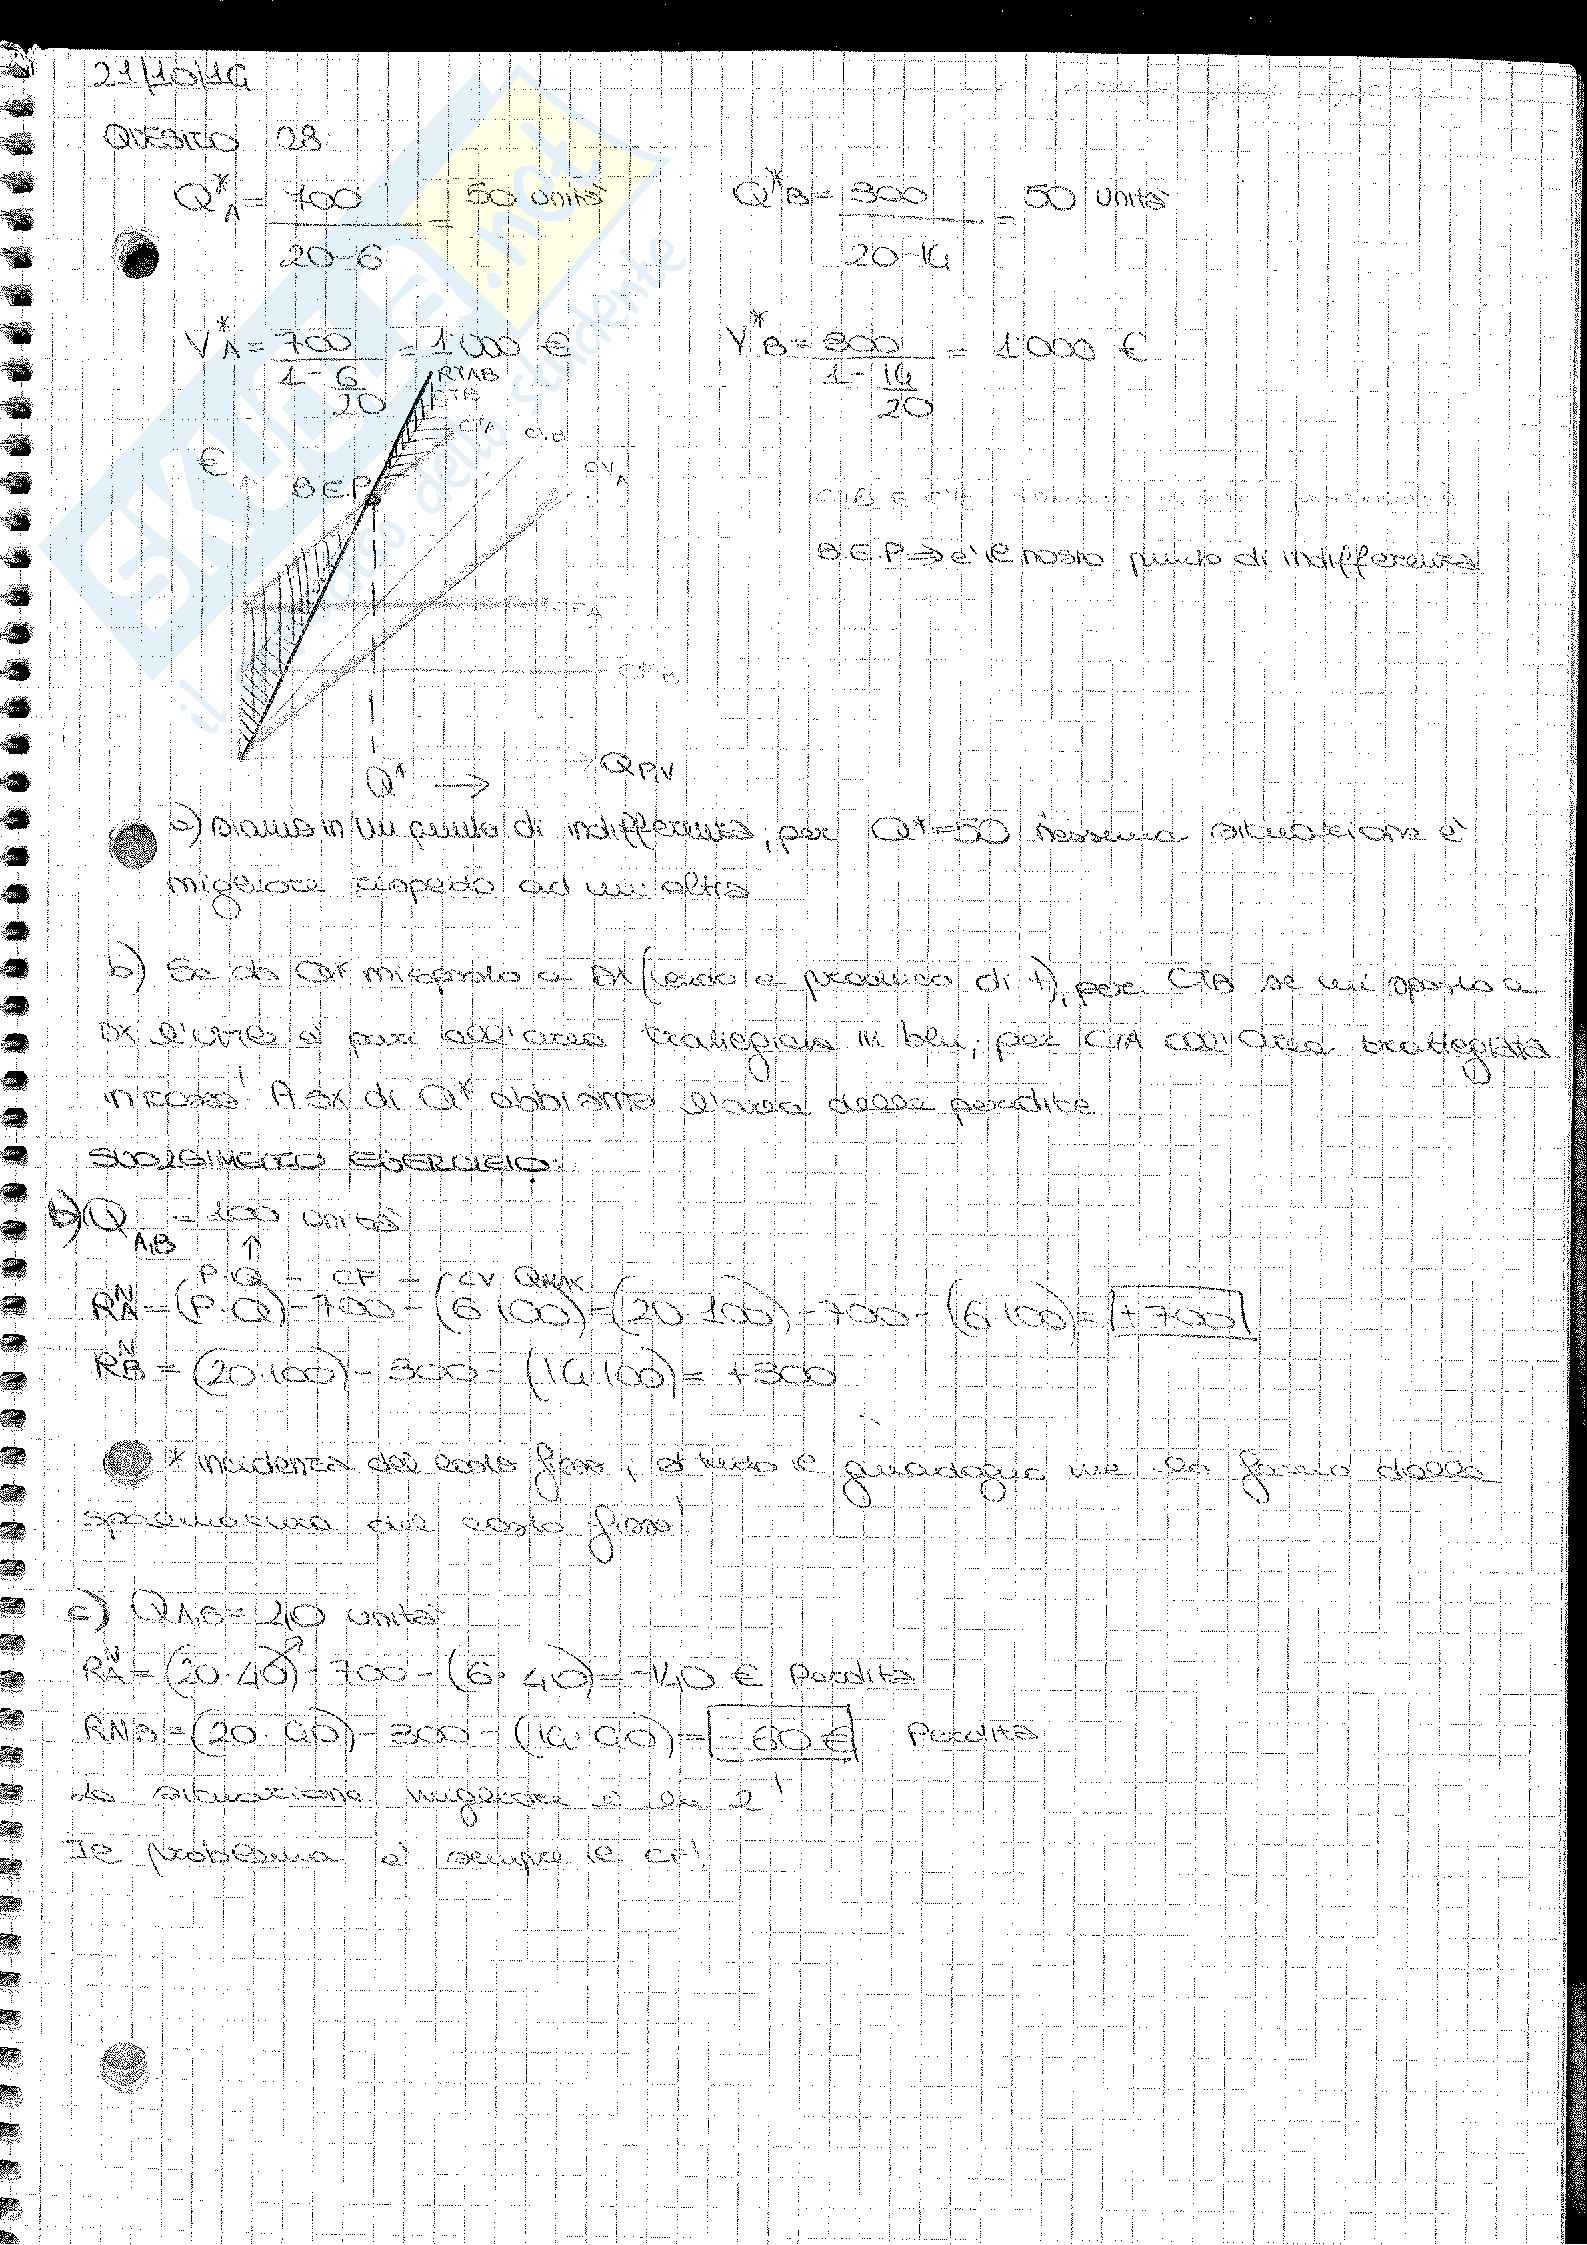 21/10/14
QUESITO 28
Q*A = 700 / 20-6 = 50 unità
Q*B = 300 / 20-14 = 50 unità
V*A = 700 / 1 - 6/20 = 1000 €
V*B = 300 / 1 - 14/20 = 1000 €
RTAB
CTB
CTA
CVB
€
CVA
B.E.P.
CTB E CTA
B.E.P → è il nostro punto di indifferenza
CFA
CFB
Q* → QP,V
a) Siamo in un punto di indifferenza, per Q*=50 nessuna situazione è
migliore rispetto ad un'altra
b) Se da Q* mi sposto a DX (vendo e produco di +), per CTB se mi sposto a
DX l'utile è pari all'area tratteggiata in blu, per CTA all'area tratteggiata
in rosso! A sx di Q* abbiamo l'area delle perdite
SVOLGIMENTO ESERCIZIO:
b) QA,B = 100 unità
P·Q - CF - CV·QMAX
RNA = (P·Q) - 700 - (6·100) = (20·100) - 700 - (6·100) = +700
RNB = (20·100) - 300 - (14·100) = +300
* incidenza del costo fisso, guadagno me lo fornisce dalla
spremitura del costo fisso!
c) QA,B = 40 unità
RNA = (20·40) - 700 - (6·40) = -140 € Perdita
RNB = (20·40) - 300 - (14·40) = -60 € Perdita
La situazione migliore è la 2!
Il problema è sempre il CF!